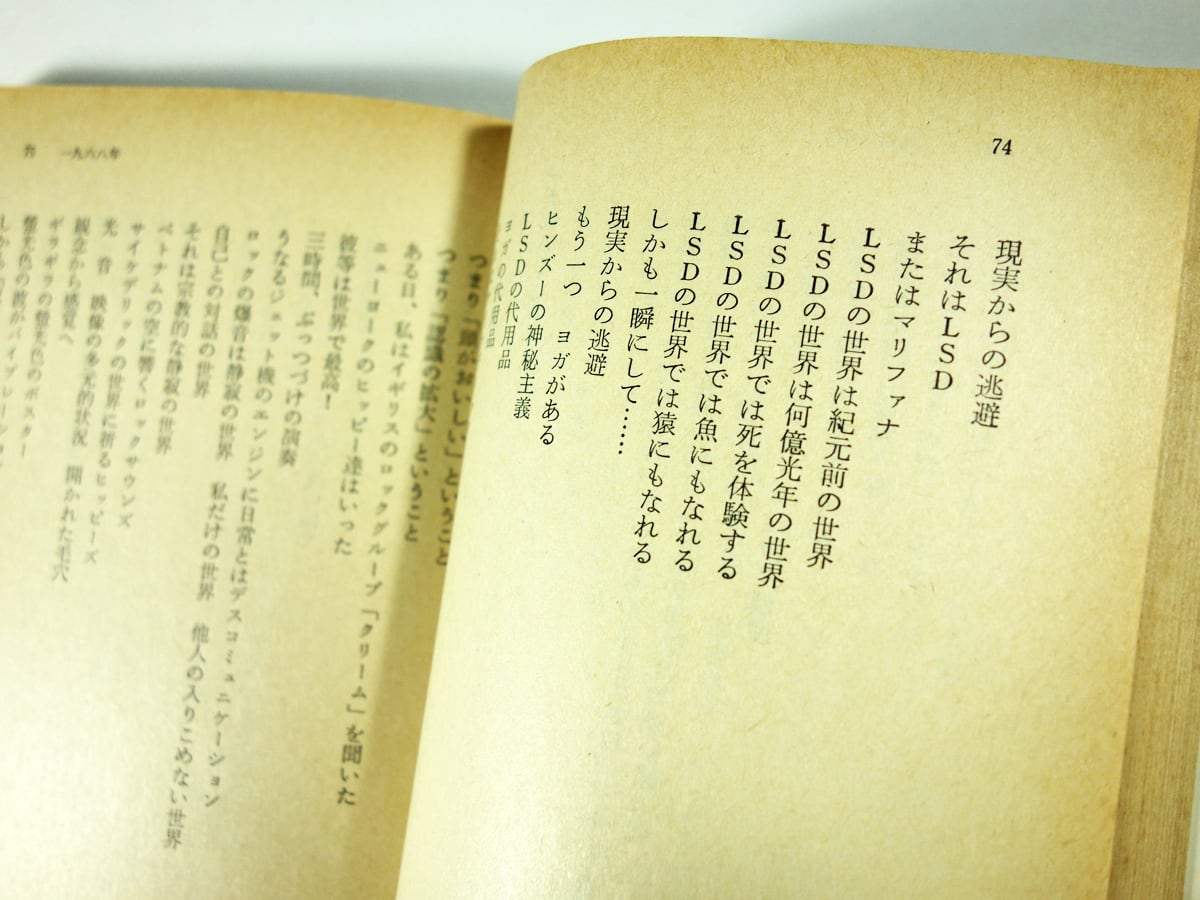 74
現実からの逃避
それはLSD
またはマリファナ
LSDの世界は紀元前の世界
LSDの世界は何億光年の世界
LSDの世界では死を体験する
LSDの世界では魚にもなれる
LSDの世界では猿にもなれる
しかも一瞬にして……
現実からの逃避
もう一つ　ヨガがある
ヒンズーの神秘主義
LSDの代用品
ヨガの代用品
75　一九六八年
つまり「頭がおいしい」ということ
つまり「の拡大」ということ
ある日、私はイギリスのロックグループ「クリーム」を聞いた
ニューヨークのヒッピー達はいった
彼等は世界で最高！
三時間、ぶっつづけの演奏
うなるジェット機のエンジンに日常とはデスコミュニケーション
ロックの爆音は静寂の世界　私だけの世界　他人の入りこめない世界
自己との対話の世界
それは宗教的な静寂の世界
ベトナムの空に響くロックサウンズ
サイケデリックの世界に祈るヒッピーズ
光　音　映像の多元的状況　開かれた毛穴
観念から感覚へ
ギラギラの螢光色のポスター
螢光色の波がバイブレーション